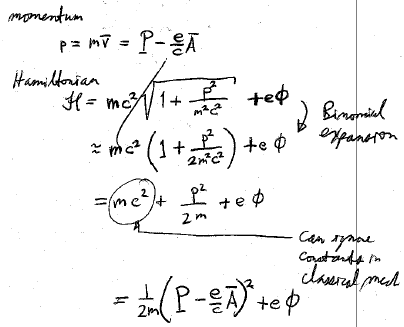 momentum
p = mv̄ = P - e/c Ā
Hamiltonian
H = mc² √(1 + p²/m²c²) + eφ
Binomial expansion
≈ mc² (1 + p²/2m²c²) + eφ
= mc² + p²/2m + eφ
Can ignore
constants in
classical mech
= 1/2m (P - e/c Ā)² + eφ